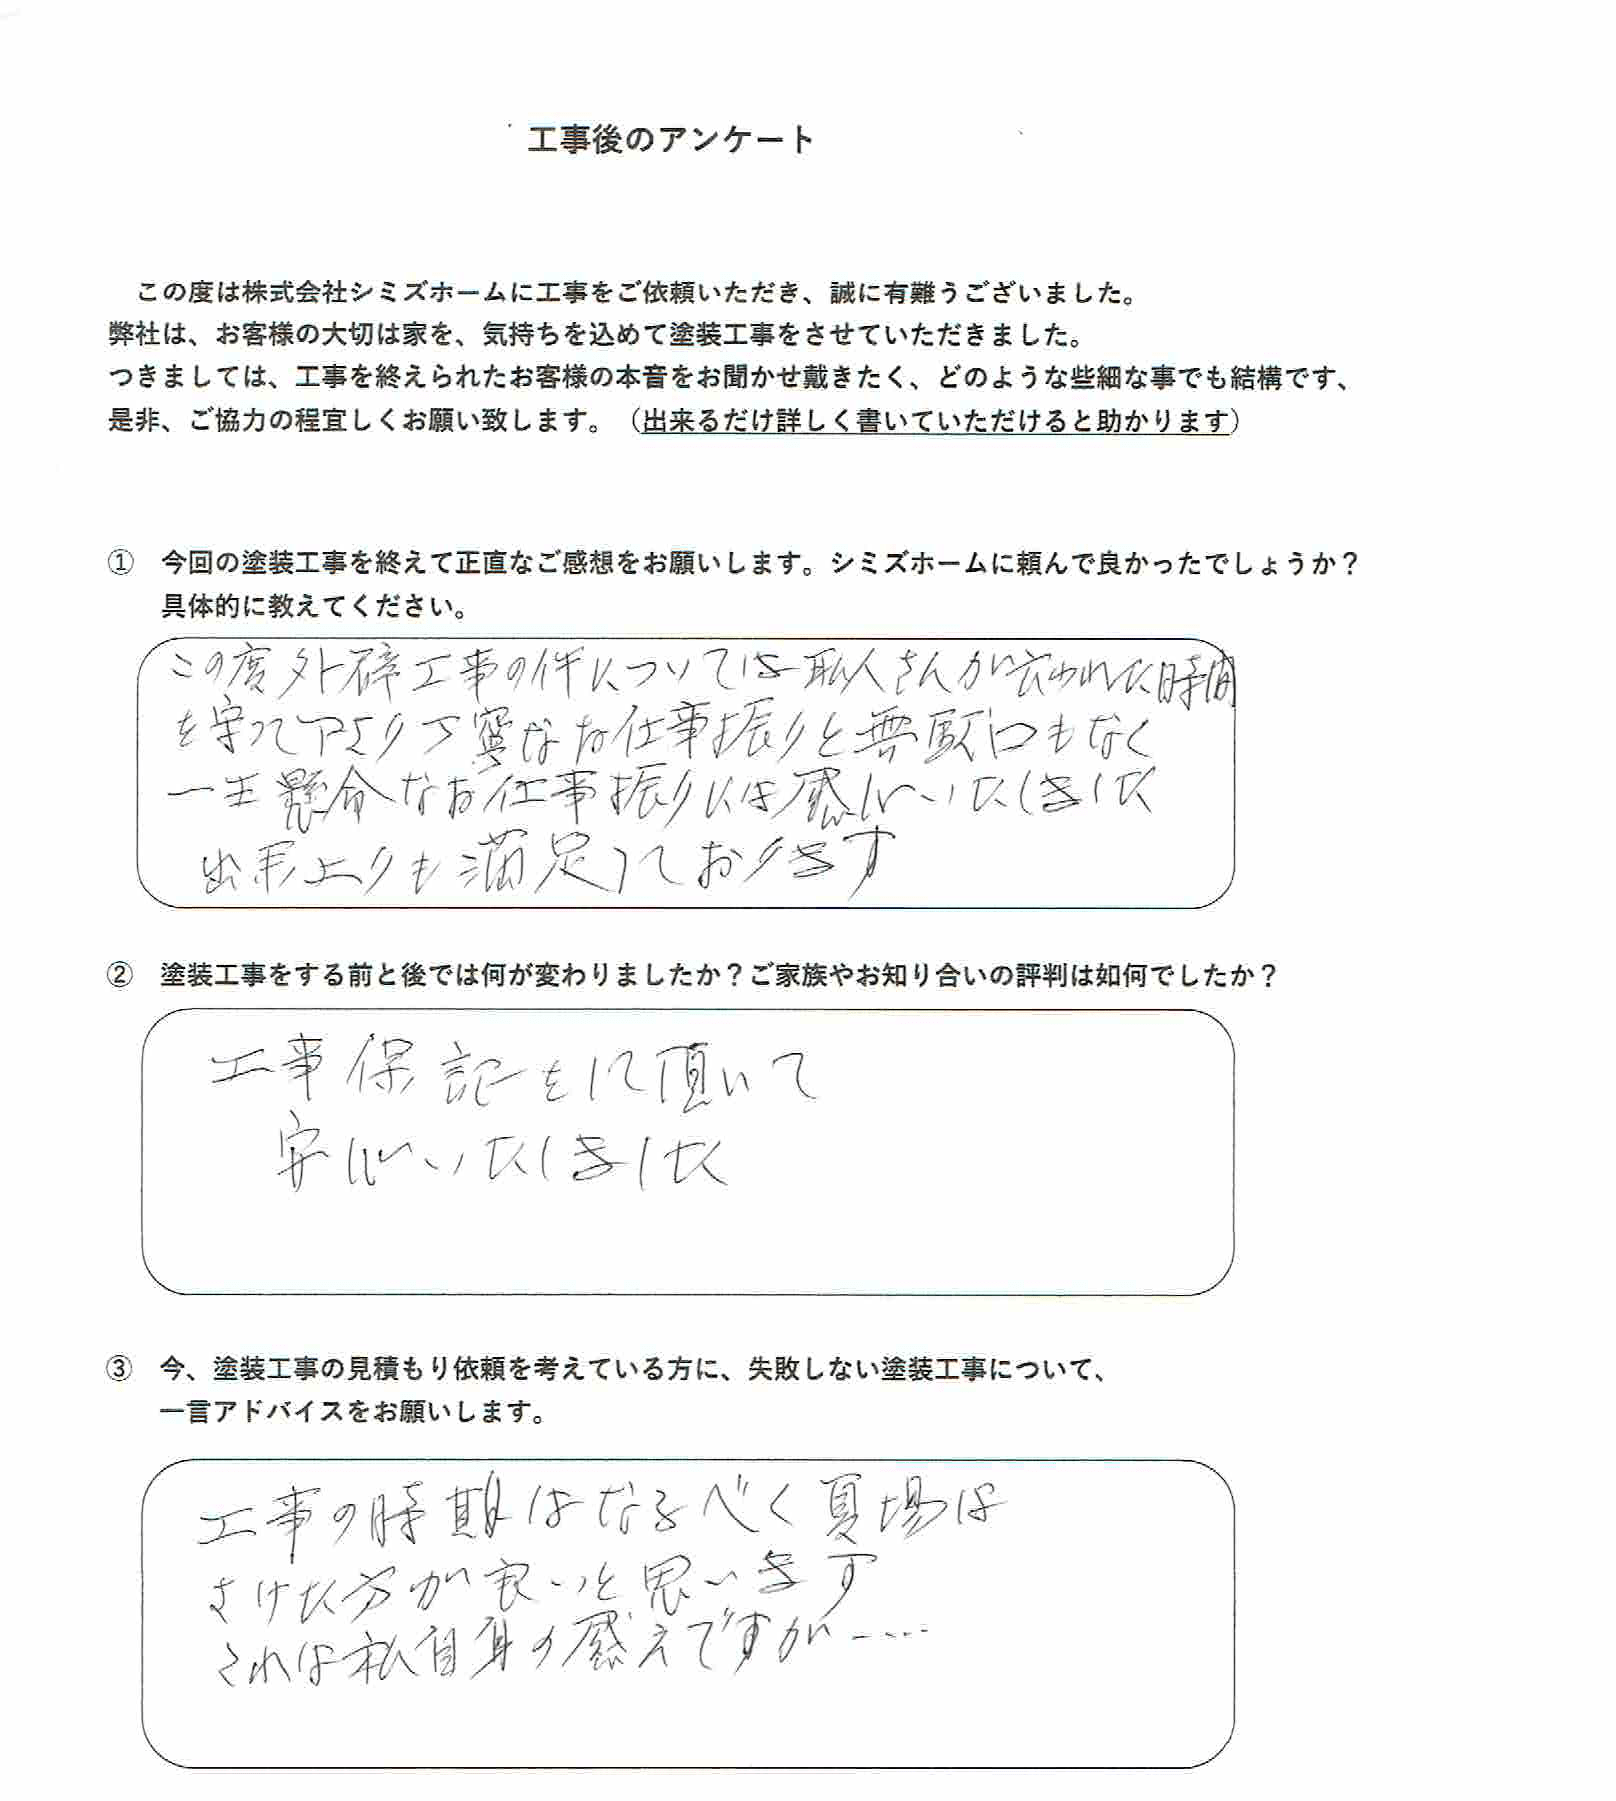 工事後のアンケート
この度は株式会社シミズホームに工事をご依頼いただき、誠に有難うございました。
弊社は、お客様の大切は家を、気持ちを込めて塗装工事をさせていただきました。
つきましては、工事を終えられたお客様の本音をお聞かせ戴きたく、どのような些細な事でも結構です、
是非、ご協力の程宜しくお願い致します。（出来るだけ詳しく書いていただけると助かります）
① 今回の塗装工事を終えて正直なご感想をお願いします。シミズホームに頼んで良かったでしょうか？
具体的に教えてください。
この度外壁工事の件については職人さんが云われた時間
を守って下さり丁寧なお仕事振りと無駄口もなく
一生懸命なお仕事振りには感心いたしました
出来上りも満足しております
② 塗装工事をする前と後では何が変わりましたか？ご家族やお知り合いの評判は如何でしたか？
工事保証をして頂いて
安心いたしました
③ 今、塗装工事の見積もり依頼を考えている方に、失敗しない塗装工事について、
一言アドバイスをお願いします。
工事の時期はなるべく夏場は
さけた方が良いと思います
これは私自身の感えですが……